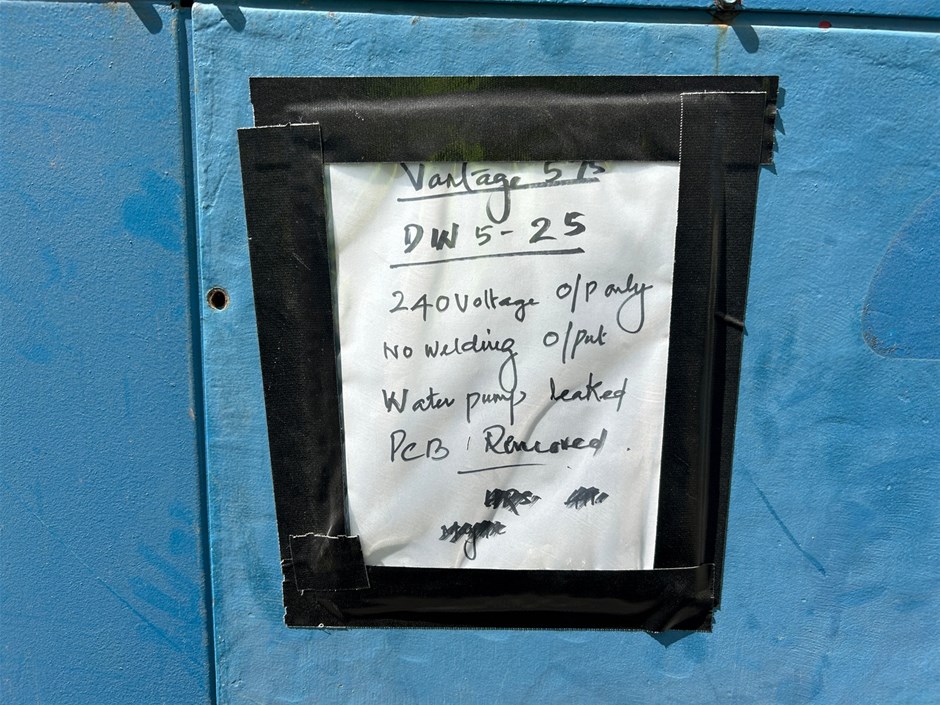 Vantage 575
DW 5-25
240 Voltage O/P only
No Welding O/Put
Water pump leaked
PCB Removed.